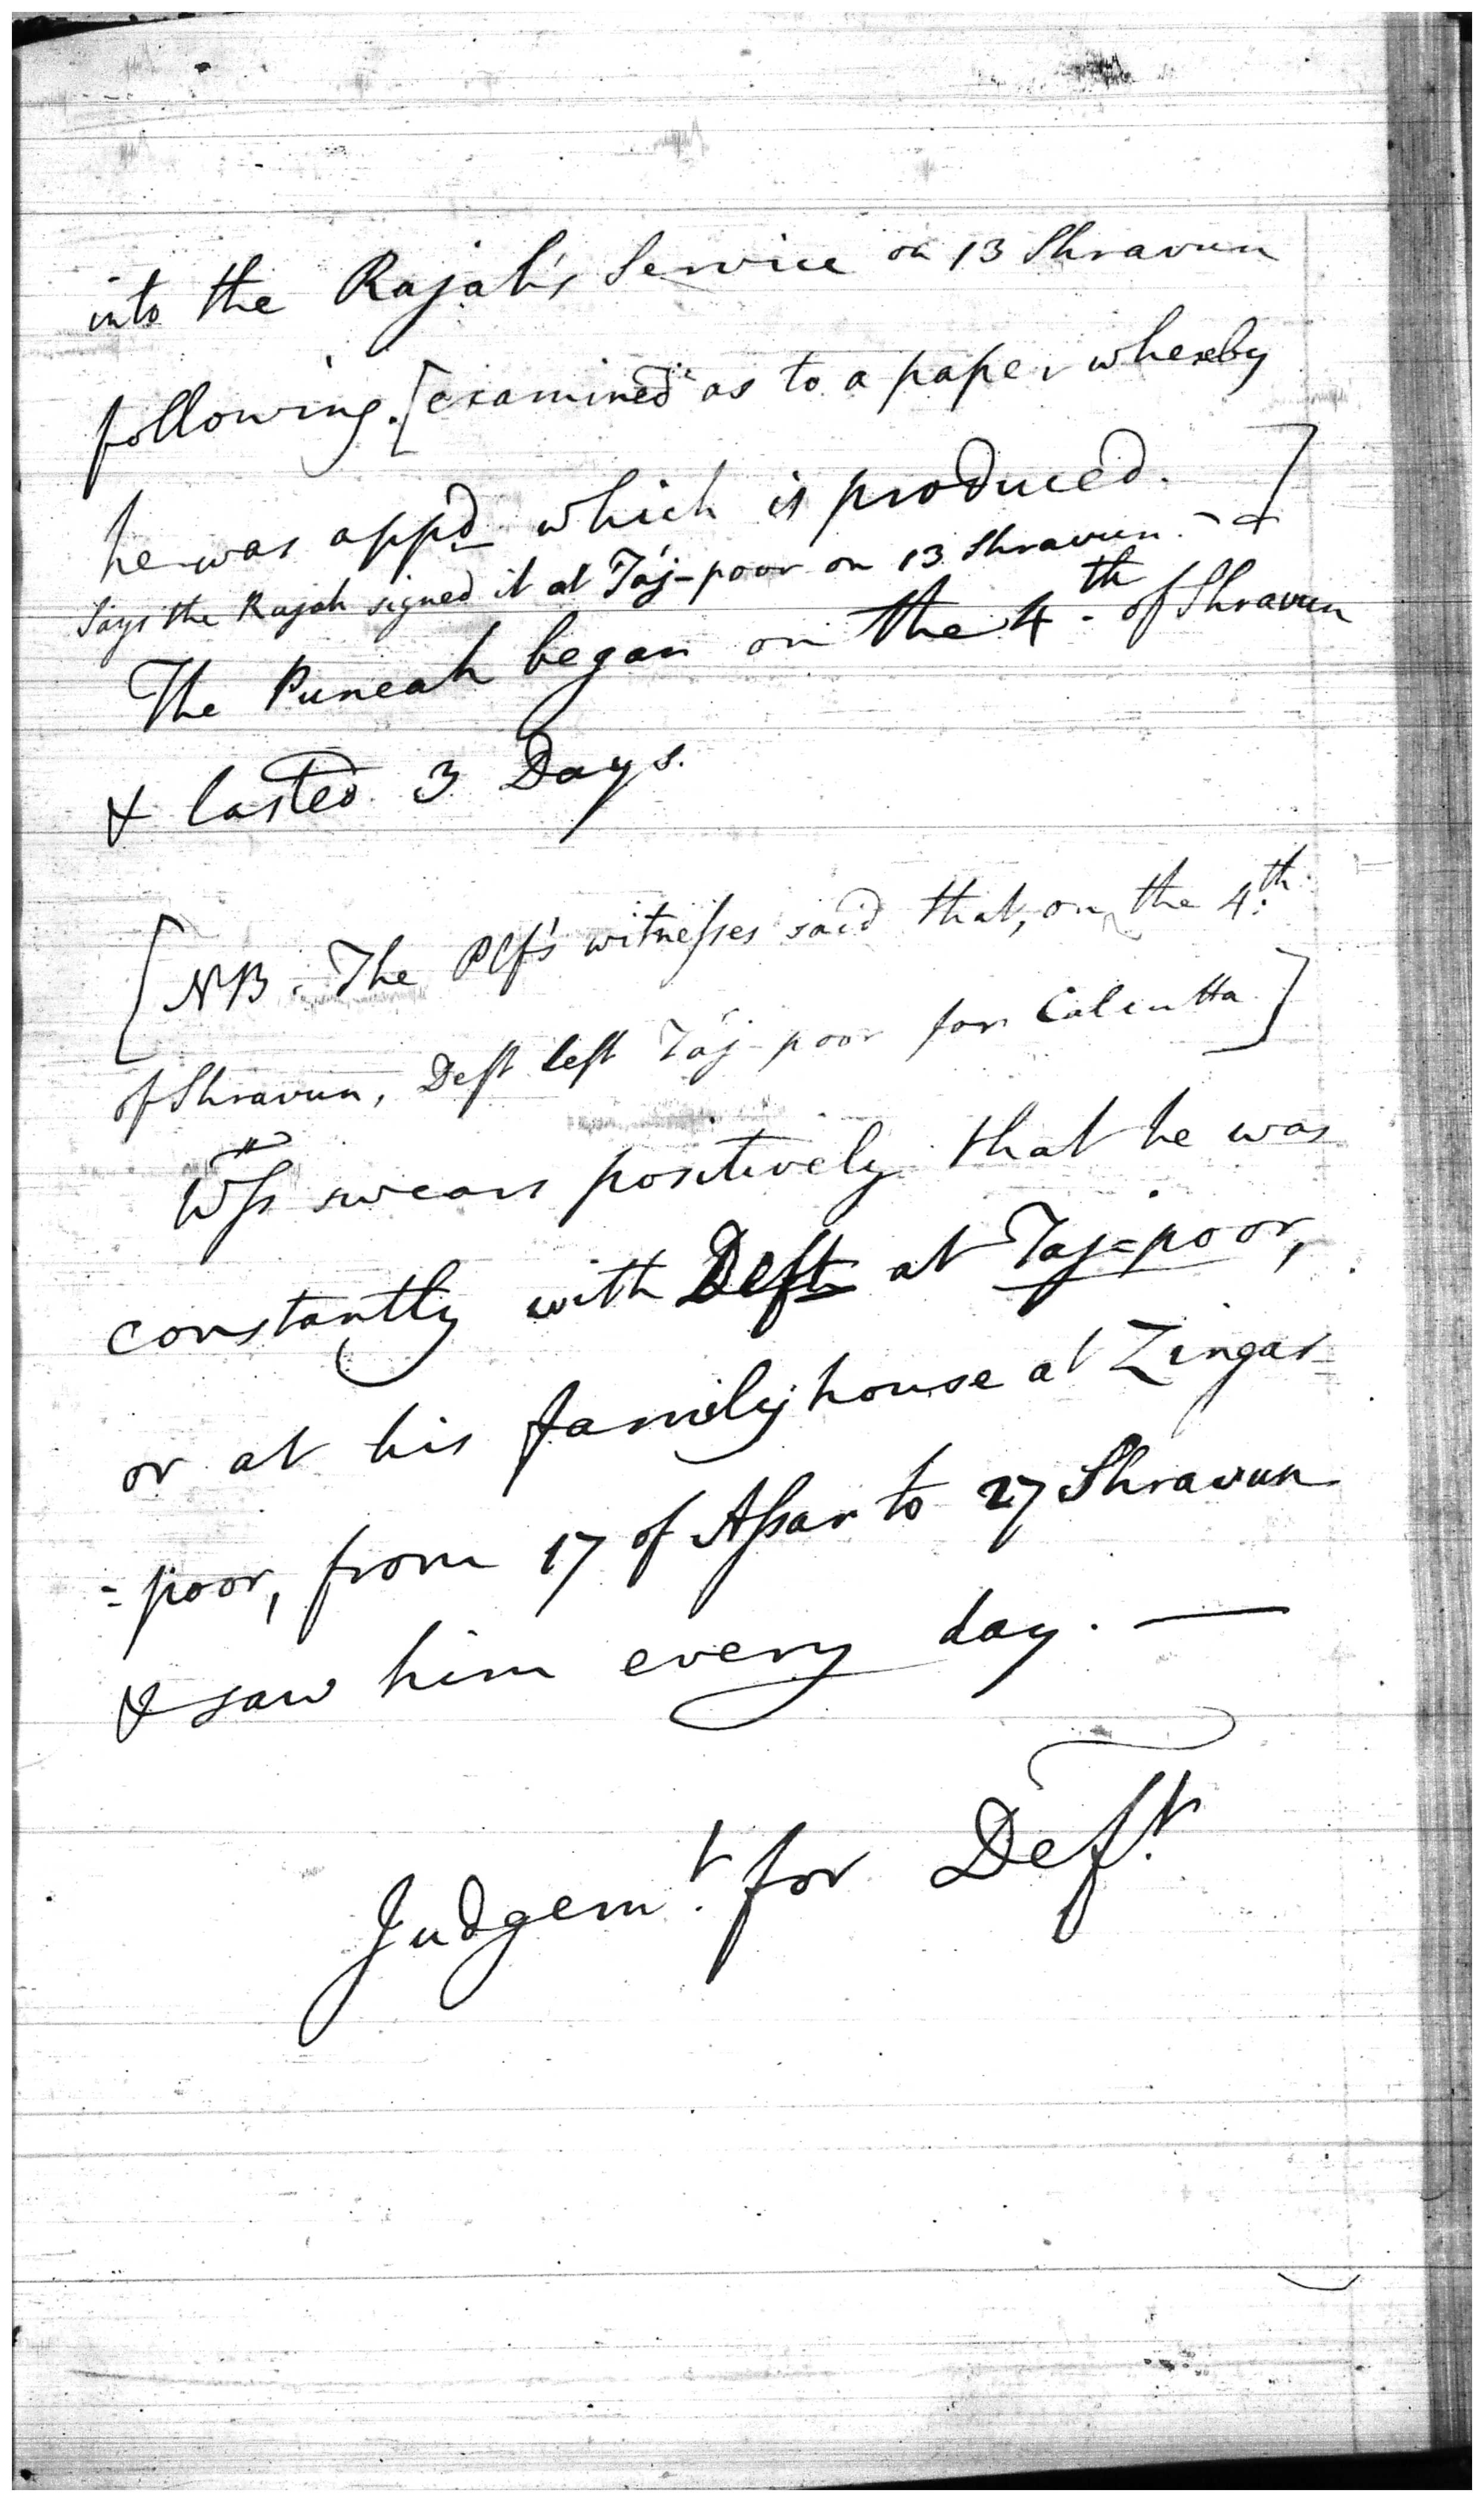 into the Rajah's Service on 13 Shravun
following. [examined as to a paper whereby
he was appd which is produced. ]
Says the Rajah signed it at Táj-poor on 13 Shravun. -
The Puneah began on the 4th of Shravun
& lasted 3 Days.
[NB. The Plf's witnesses said that, on the 4th
of Shravun, Deft left Táj-poor for Calcutta]
Wss swears positively that he was
constantly with Deft at Taj=poor,
or at his family house at Zingar=
=poor, from 17 of Assar to 27 Shravun
& saw him every day. —
Judgemt. for Deft.